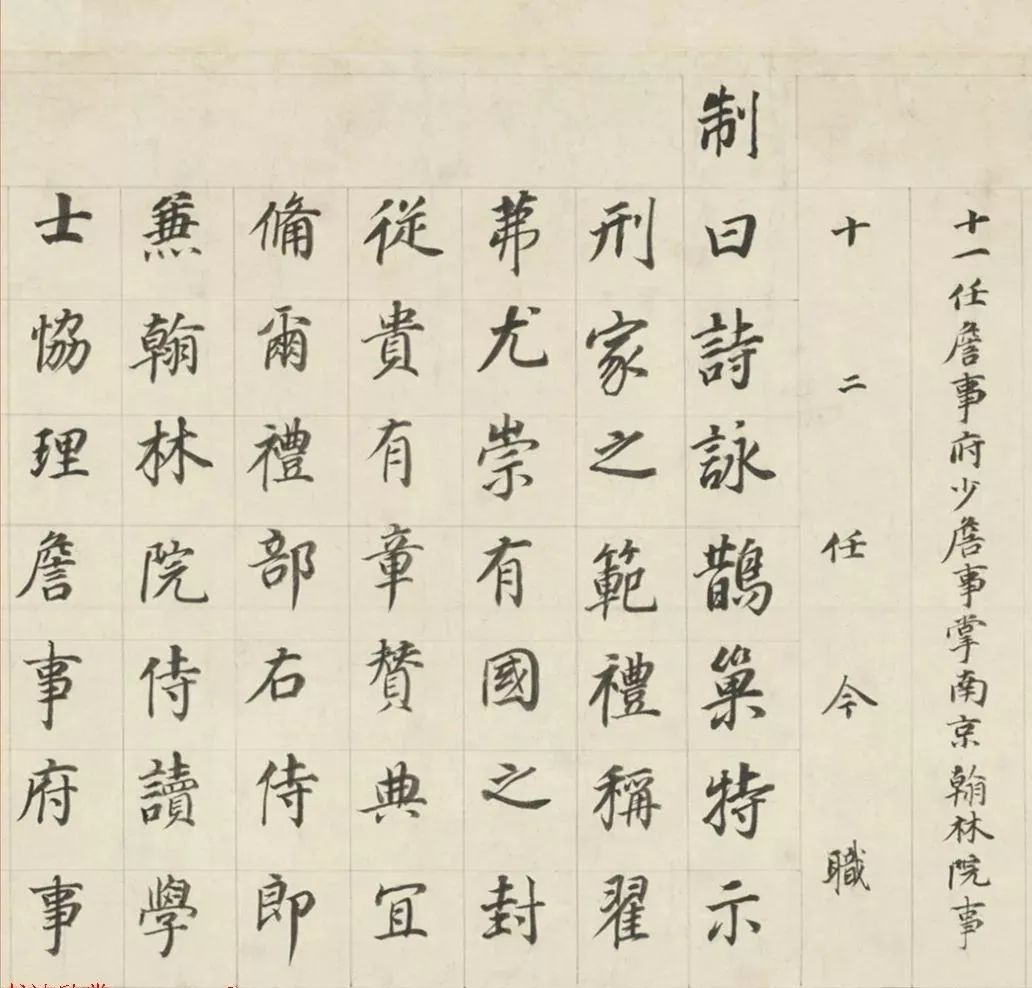 十一任詹事府少詹事掌南京翰林院事
十二任今職
制
曰詩詠鵲巢特示
刑家之範禮稱翟
茀尤崇有國之封
從貴有章贊典宜
備爾禮部右侍郎
兼翰林院侍讀學
士協理詹事府事